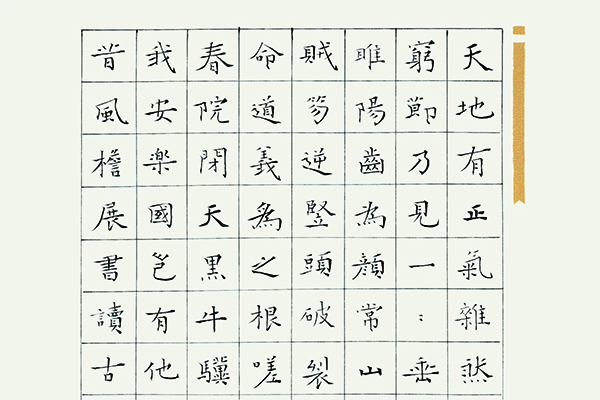 天地有正氣雜然
窮節乃見一：垂
睢陽齒為顏常山
賊笏逆豎頭破裂
命道義為之根嗟
春院閉天黑牛驥
我安楽國豈有他
昔風檐展書讀古